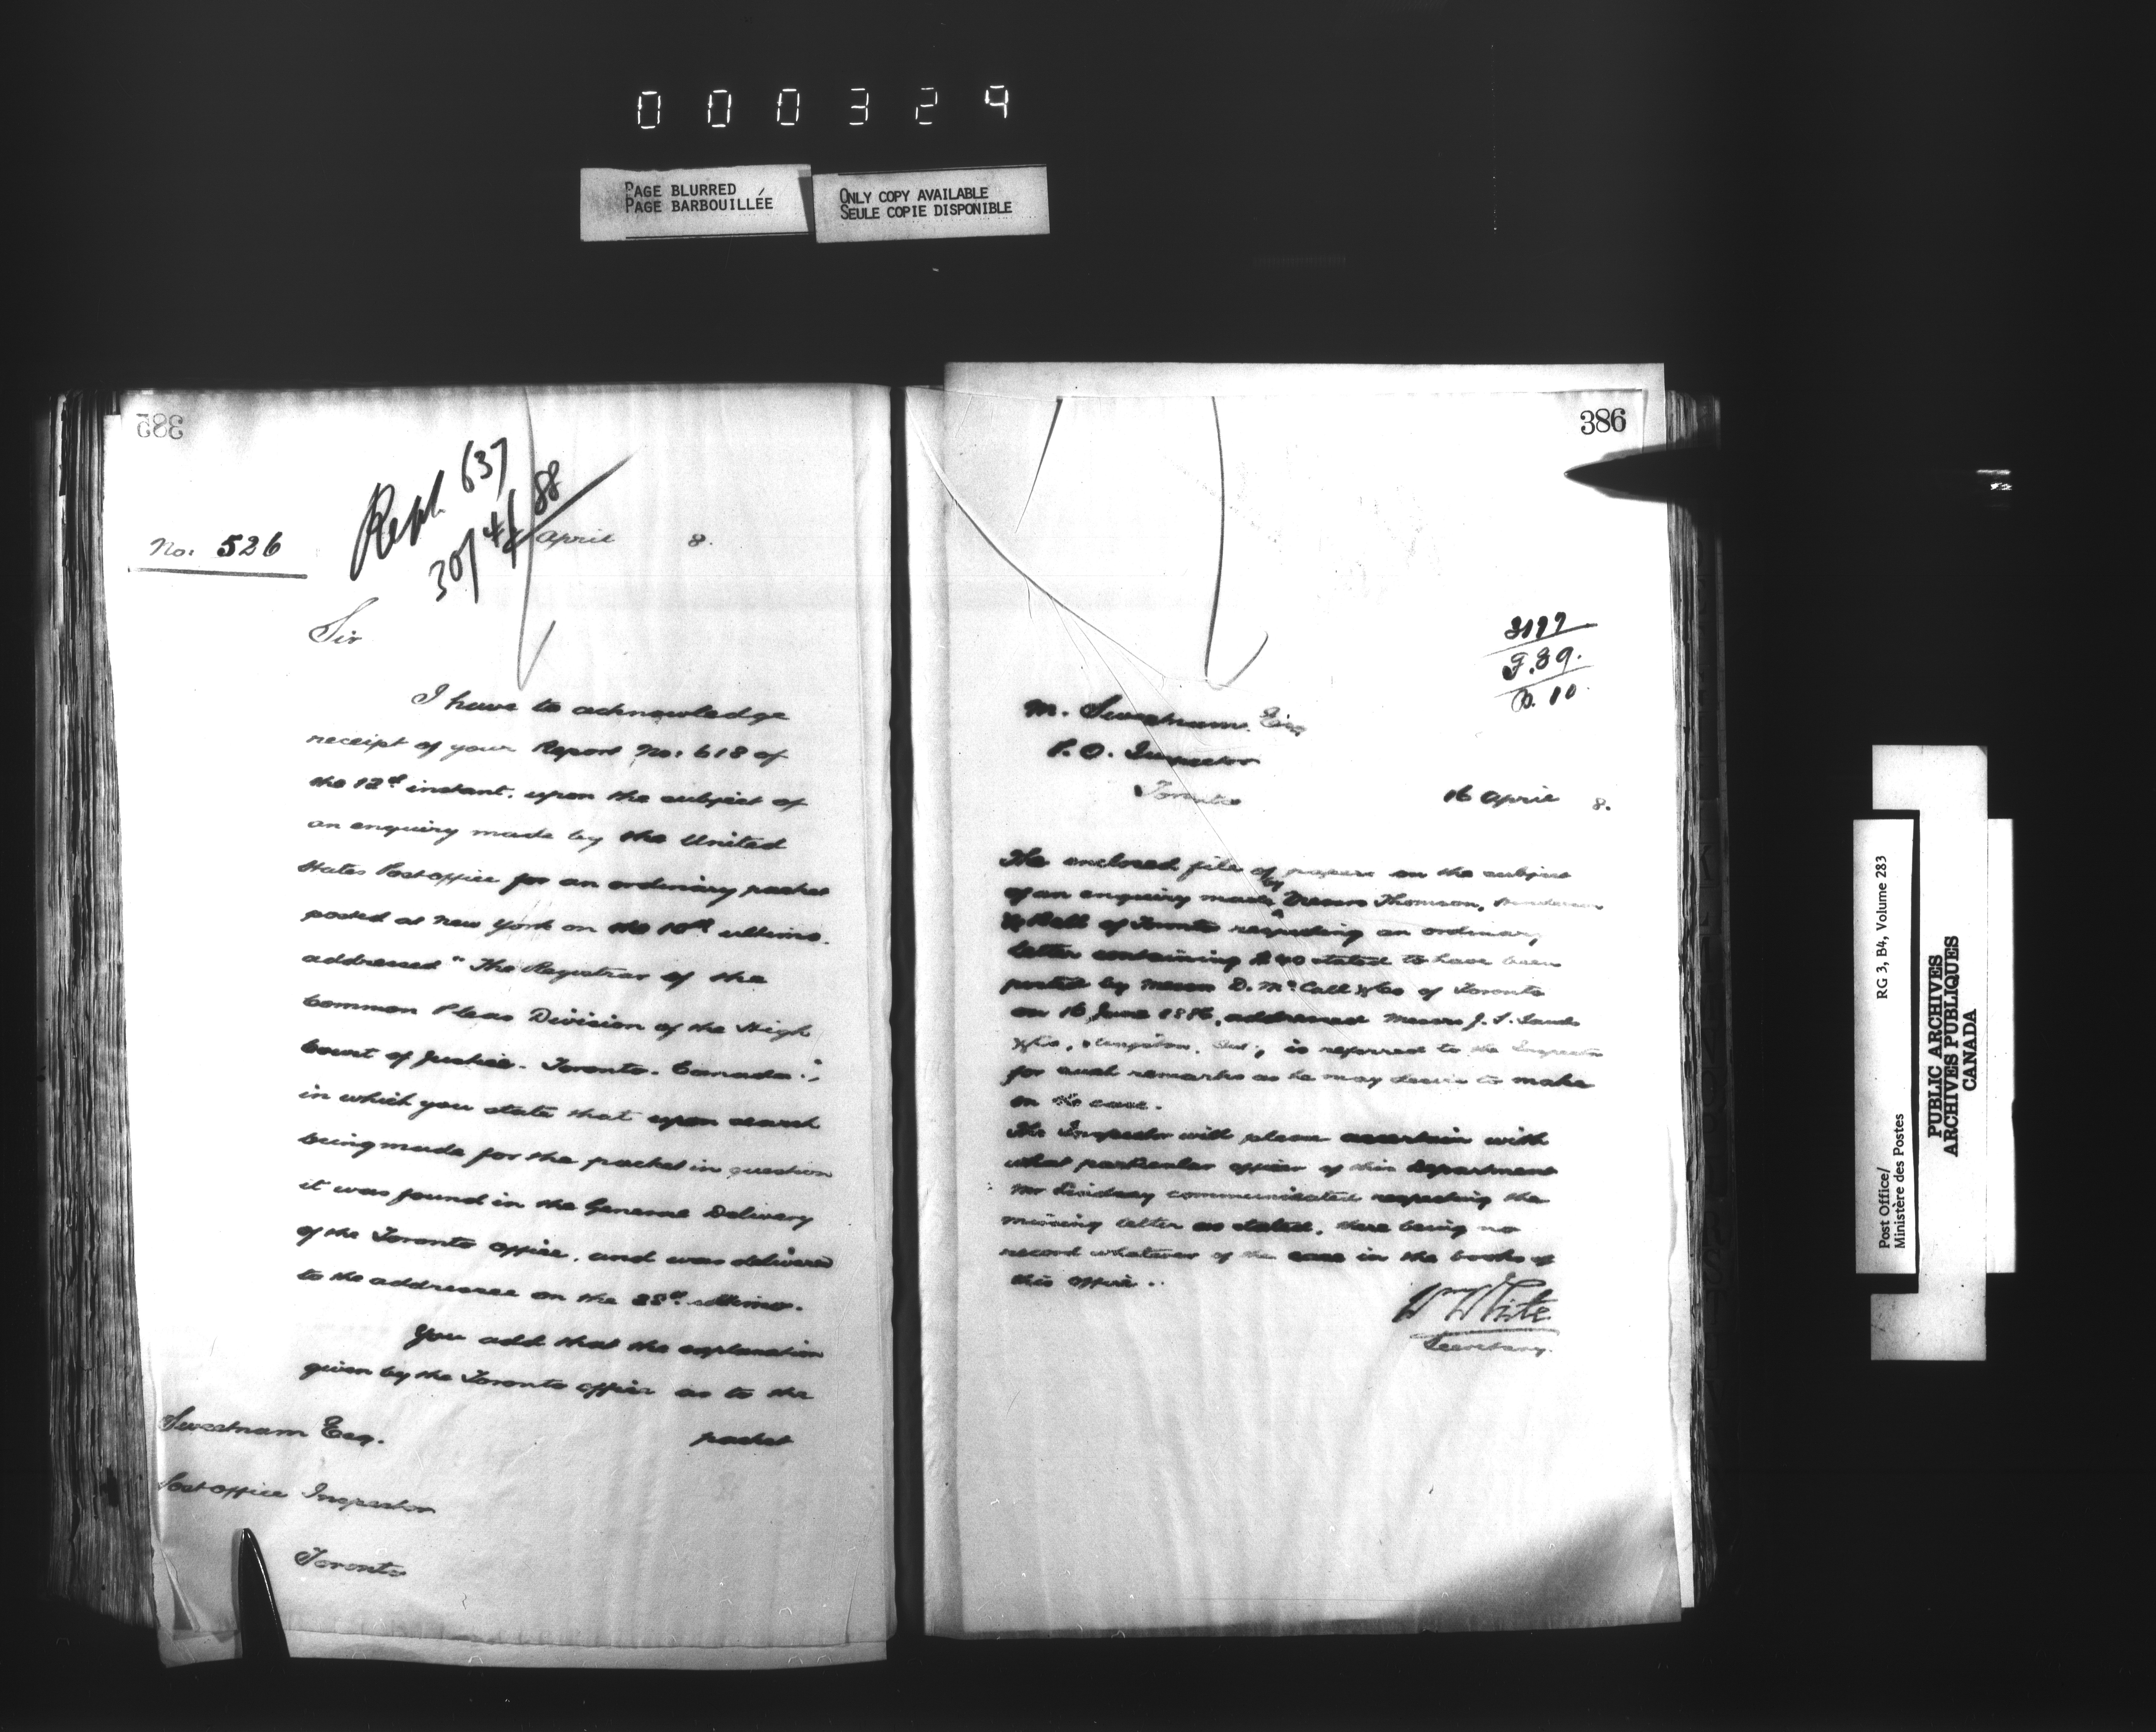 000324
PAGE BLURRED
PAGE BARBOUILLÉE
ONLY COPY AVAILABLE
SEULE COPIE DISPONIBLE
385
Rept. 637
30/4/88
No: 526
April 8.
Sir
I have to acknowledge
receipt of your Report No: 618 of
the 12th instant. upon the subject of
an enquiry made by the United
States Post office for an ordinary packet
posted at New York on the 10th ultimo.
addressed "The Registrar of the
Common Pleas Division of the High
Court of Justice. Toronto. Canada";
in which you state that upon search
being made for the packet in question
it was found in the General Delivery
of the Toronto office, and was delivered
to the addressee on the ultimo.
You add that the explanation
given by the Toronto office as to the
packet
Sweetnam Esq.
Post office Inspector
Toronto
386
F.89.
B.10.
M. Sweetnam Esq
P.O. Inspector
Toronto
16 April 8.
The enclosed file of papers on the subject
of an enquiry made by Messrs Thomson, Henderson
& Bell of Toronto respecting an ordinary
letter containing stated to have been
posted by Messrs D. McCall & Co of Toronto
on 16 June 1886, addressed Messrs J. S.
is referred to the Inspector
for such remarks as he may desire to make
on the case.
The Inspector will please ascertain with
what particular officer of this Department
Mr Lindsay communicated respecting the
missing letter as stated, there being no
record whatever of the case in the books of
this office.
Wm White
Secretary.
Post Office/
Ministère des Postes
RG 3, B4, Volume 283
PUBLIC ARCHIVES
ARCHIVES PUBLIQUES
CANADA